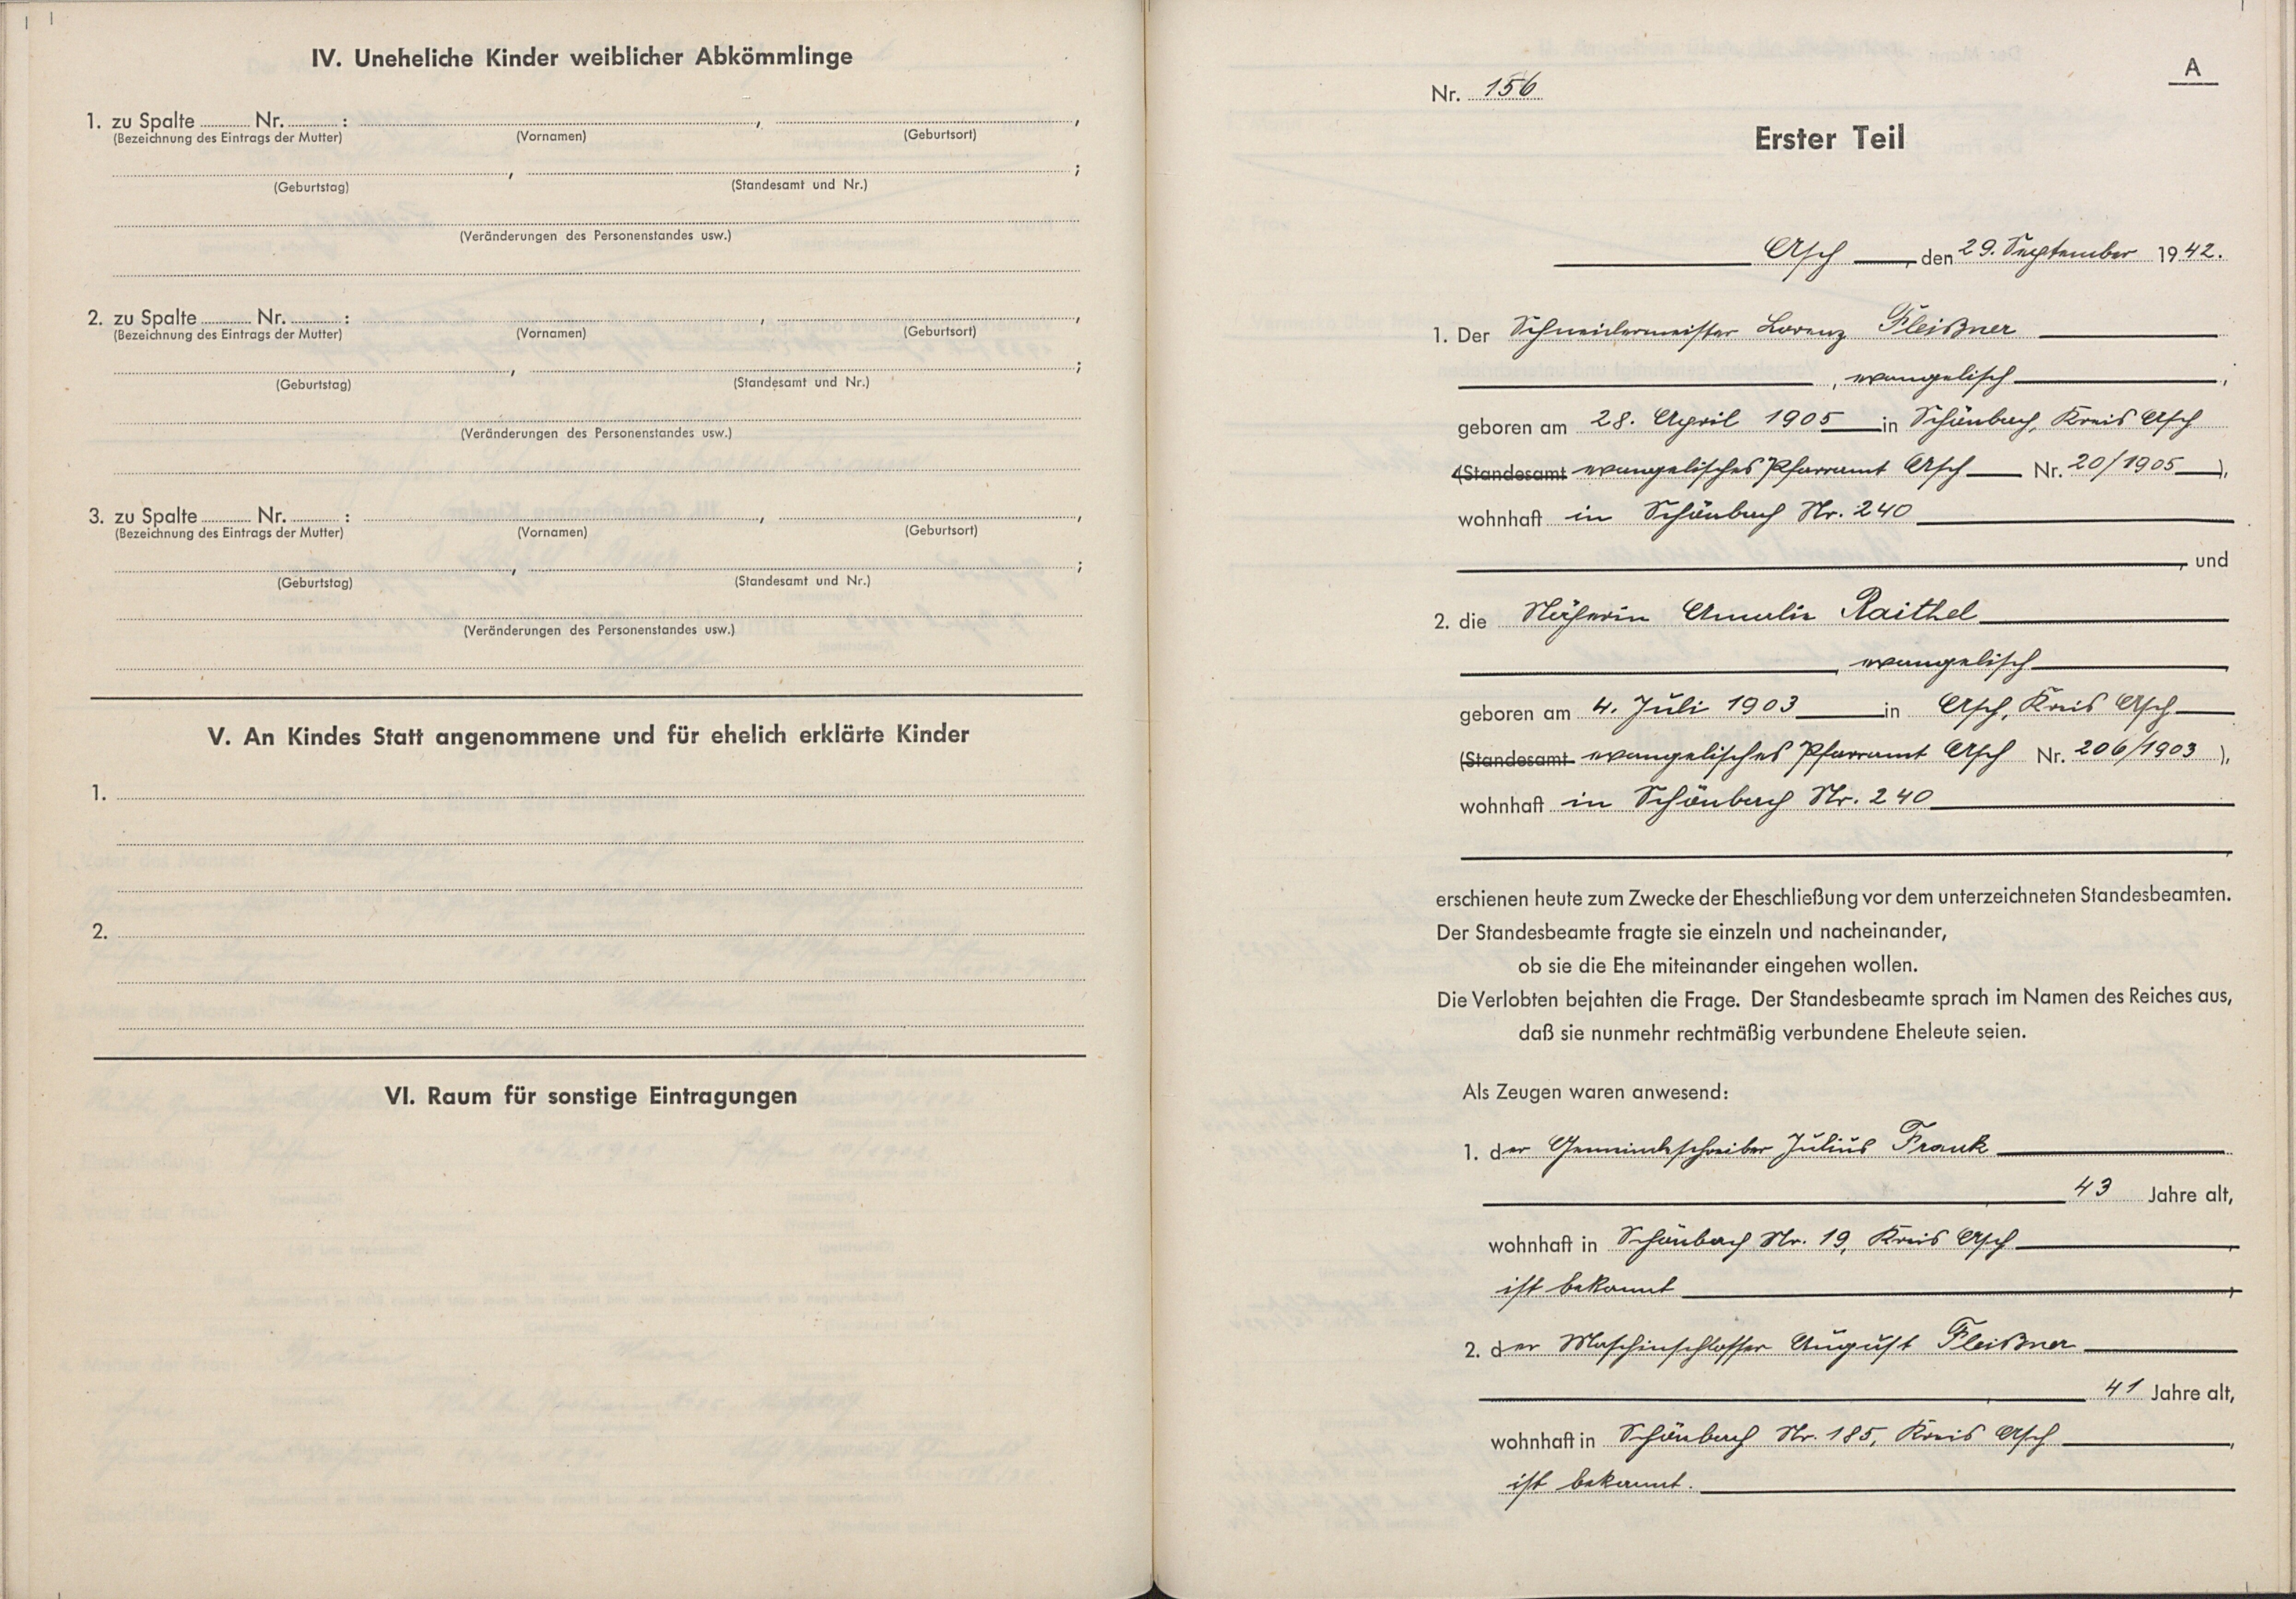 IV. Uneheliche Kinder weiblicher Abkömmlinge
1. zu Spalte ........ Nr. ........ : ........, ........,
(Bezeichnung des Eintrags der Mutter) (Vornamen) (Geburtsort)
(Geburtstag) (Standesamt und Nr.)
(Veränderungen des Personenstandes usw.)
2. zu Spalte ........ Nr. ........ : ........, ........,
(Bezeichnung des Eintrags der Mutter) (Vornamen) (Geburtsort)
(Geburtstag) (Standesamt und Nr.)
(Veränderungen des Personenstandes usw.)
3. zu Spalte ........ Nr. ........ : ........, ........,
(Bezeichnung des Eintrags der Mutter) (Vornamen) (Geburtsort)
(Geburtstag) (Standesamt und Nr.)
(Veränderungen des Personenstandes usw.)
V. An Kindes Statt angenommene und für ehelich erklärte Kinder
1.
2.
VI. Raum für sonstige Eintragungen
A
Nr. 156
Erster Teil
Asch, den 29. September 1942.
1. Der Schneidermeister Lorenz Fleißner
, evangelisch,
geboren am 28. April 1905 in Schönbach, Kreis Asch
(Standesamt evangelisches Pfarramt Asch Nr. 20/1905),
wohnhaft in Schönbach Nr. 240
, und
2. die Näherin Amalie Raithel
, evangelisch
geboren am 4. Juli 1903 in Asch, Kreis Asch
(Standesamt evangelisches Pfarramt Asch Nr. 206/1903),
wohnhaft in Schönbach Nr. 240
,
erschienen heute zum Zwecke der Eheschließung vor dem unterzeichneten Standesbeamten.
Der Standesbeamte fragte sie einzeln und nacheinander,
ob sie die Ehe miteinander eingehen wollen.
Die Verlobten bejahten die Frage. Der Standesbeamte sprach im Namen des Reiches aus,
daß sie nunmehr rechtmäßig verbundene Eheleute seien.
Als Zeugen waren anwesend:
1. der Gemeindeschreiber Julius Frank
, 43 Jahre alt,
wohnhaft in Schönbach Nr. 19, Kreis Asch,
ist bekannt,
2. der Maschinschlosser August Fleißner
, 41 Jahre alt,
wohnhaft in Schönbach Nr. 185, Kreis Asch,
ist bekannt.